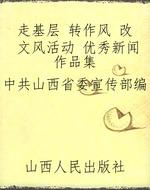 走基层 转作风 改
文风活动 优秀新闻
作品集
中共山西省委宣传部编
山西人民出版社